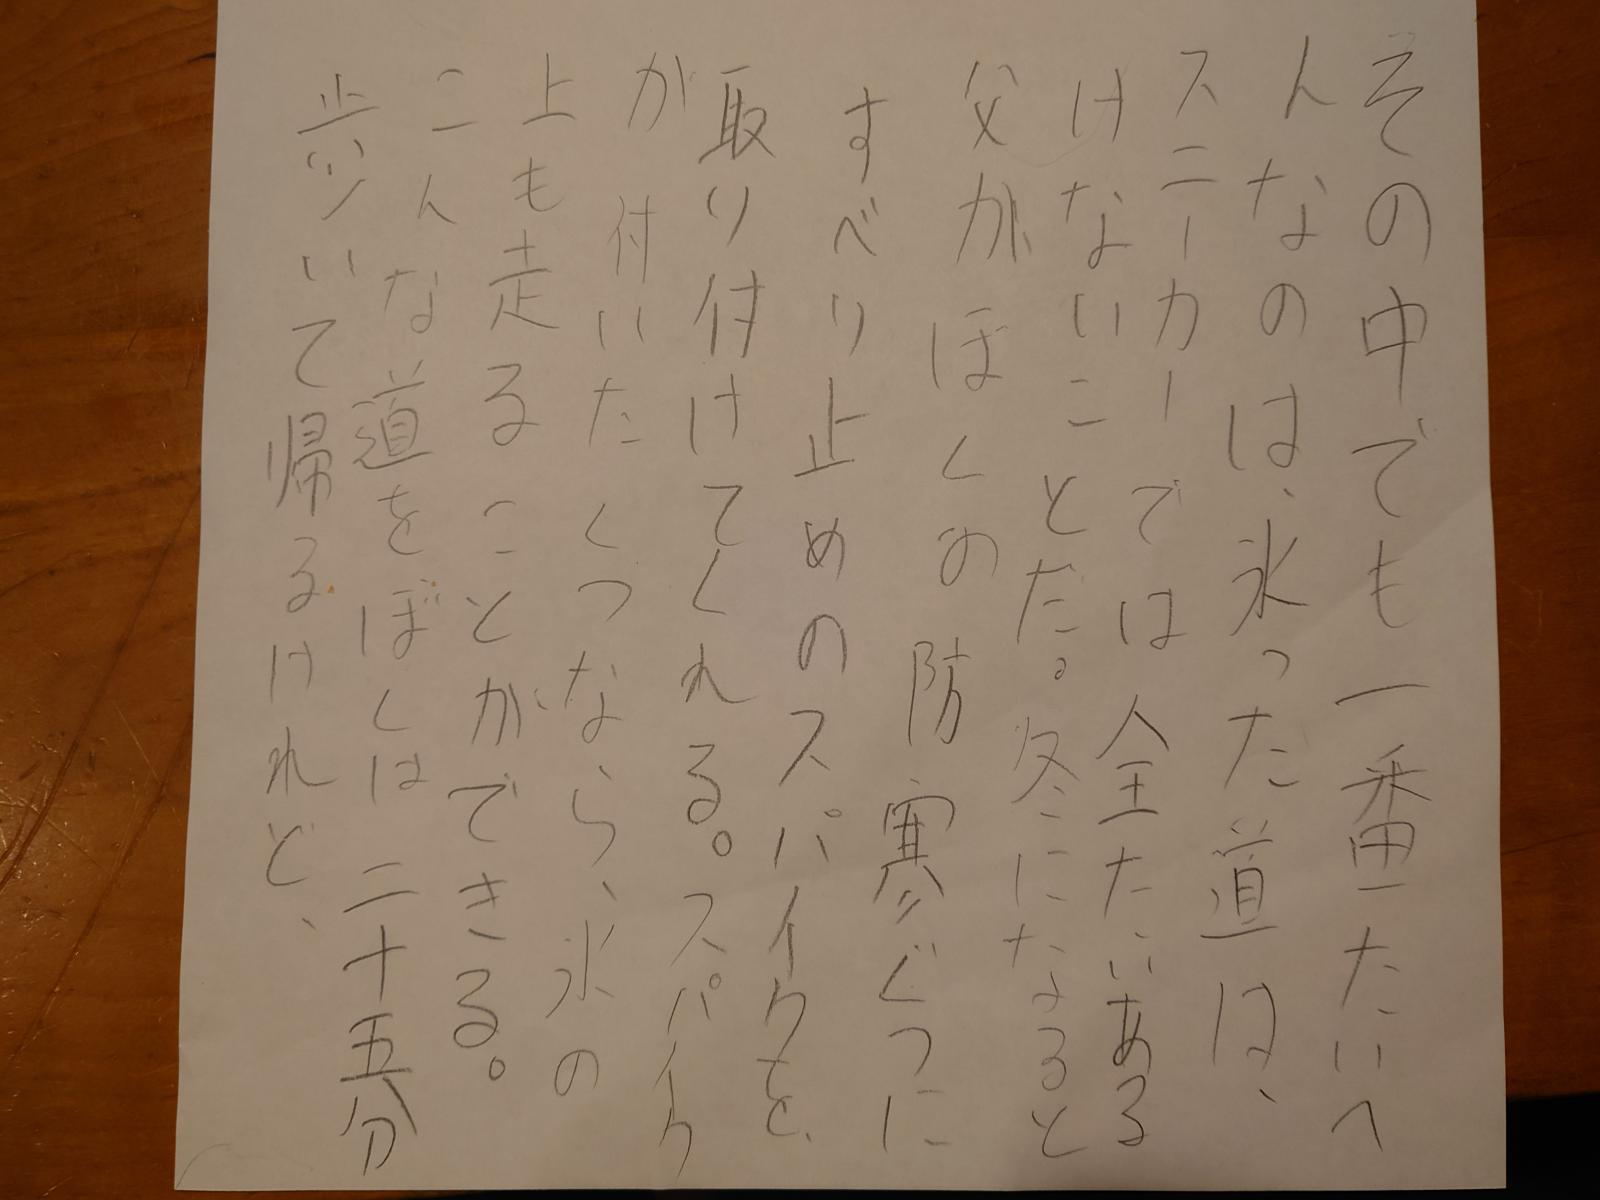 その中でも一番たいへ
んなのは、氷った道は、
スニーカーでは全たいある
けないことだ。冬になると
父がぼくの防寒ぐつに
すべり止めのスパイクを、
取り付けてくれる。スパイク
が付いたくつなら、氷の
上も走ることができる。
こんな道をぼくは二十五分
歩いて帰るけれど、